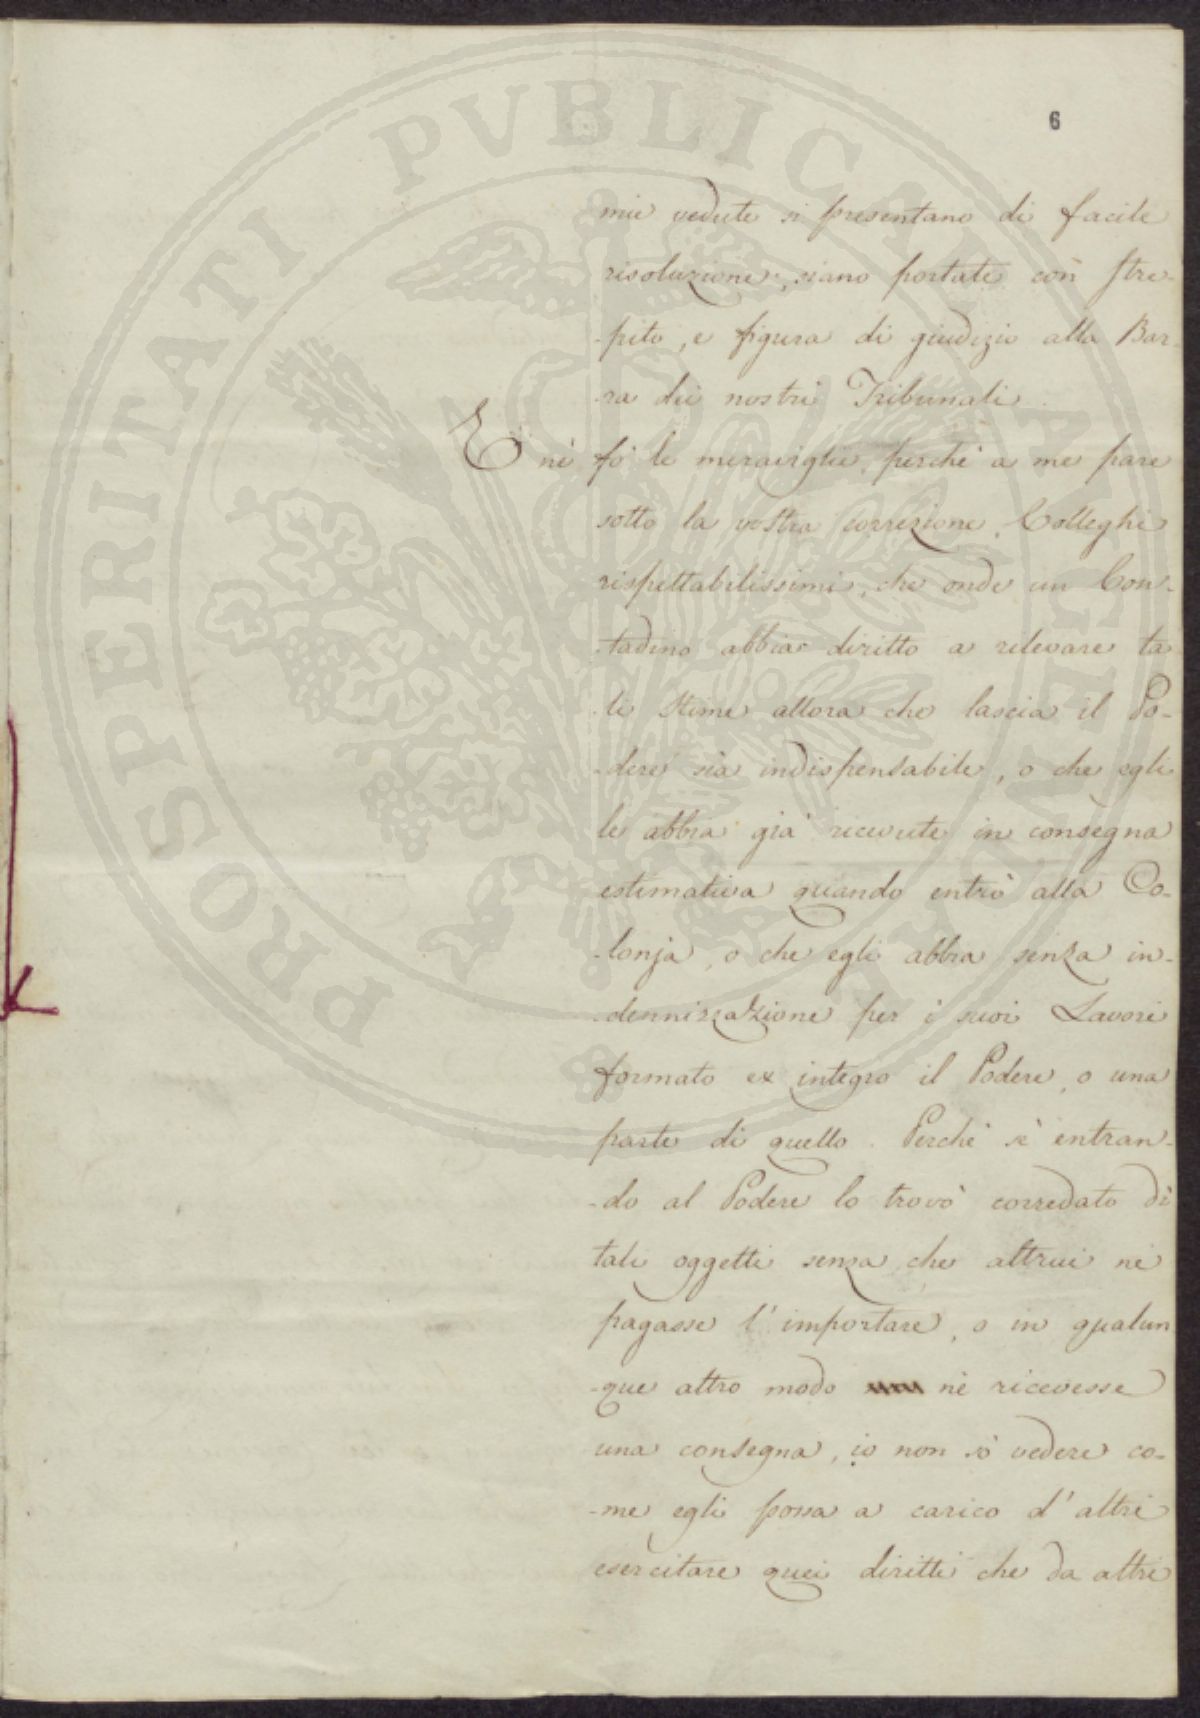 6
mie vedute si presentano di facile
risoluzione, siano portate con stre-
-pito, e figura di giudizio alla Bar-
-ra dei nostri Tribunali.
E nè fo' le meraviglie, perchè a me pare
sotto la vostra correzione, Colleghi
rispettabilissimi, che onde un Con-
-tadino abbia diritto a rilevare ta
-li stime allora che lascia il Po-
-dere sia indispensabile, o che egli
le abbia gia' ricevute in consegna
estimativa quando entrò alla Co-
-lonja, o che egli abbia senza in-
-dennizzazione per i suoi Lavori
formato ex integro il Podere, o una
parte di quello. Perchè sè entran-
-do al Podere lo trovò corredato di
tali oggetti senza che altrui nè
pagasse l'importare, o in qualun
-que altro modo nè ricevesse
una consegna, io non sò vedere co-
-me egli possa a carico d'altri
esercitare quei diritti che da altri
PROSPERITATI PVBLICAE AVGENDAE